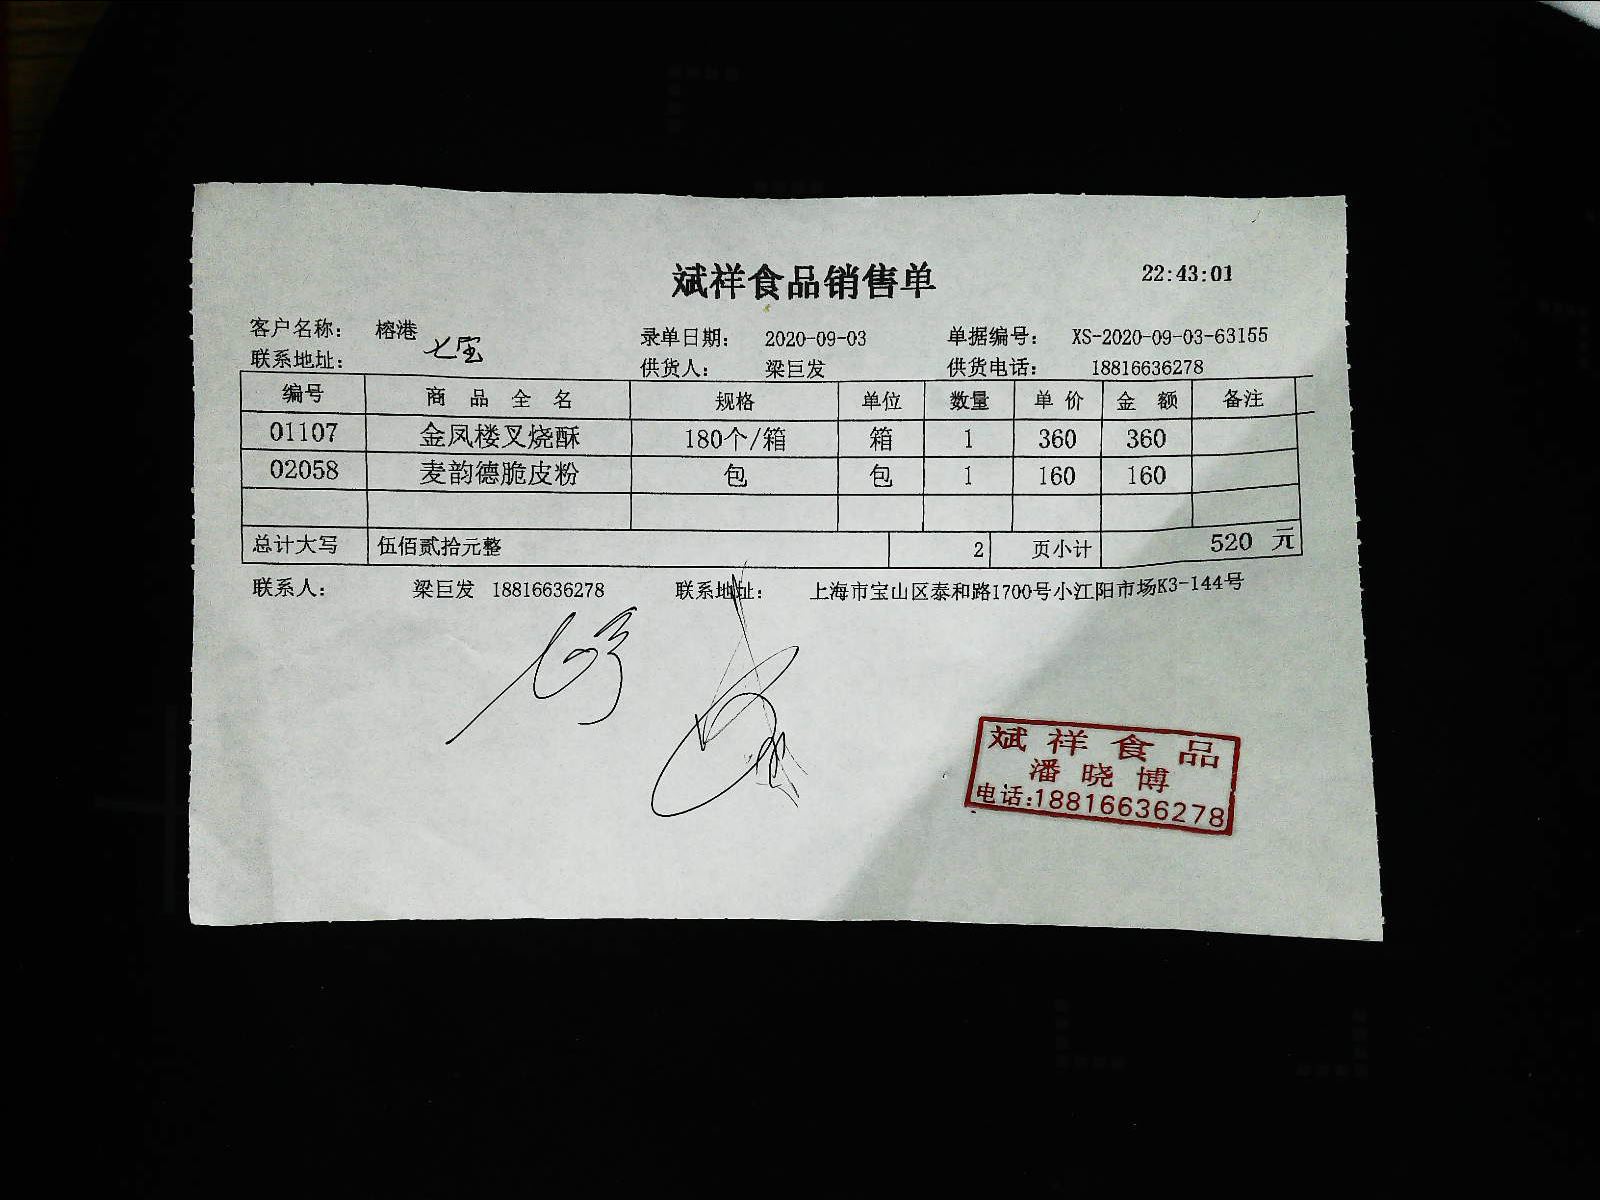 斌祥食品销售单 22:43:01
客户名称： 榕港 录单日期： 2020-09-03 单据编号： XS-2020-09-03-63155
七宝
联系地址： 供货人： 梁巨发 供货电话： 18816636278
编号 商品全名 规格 单位 数量 单价 金额 备注
01107 金凤楼叉烧酥 180个/箱 箱 1 360 360
02058 麦韵德脆皮粉 包 包 1 160 160
总计大写 伍佰贰拾元整 2 页小计 520 元
联系人： 梁巨发 18816636278 联系地址： 上海市宝山区泰和路1700号小江阳市场K3-144号
斌祥食品
潘晓博
电话:18816636278